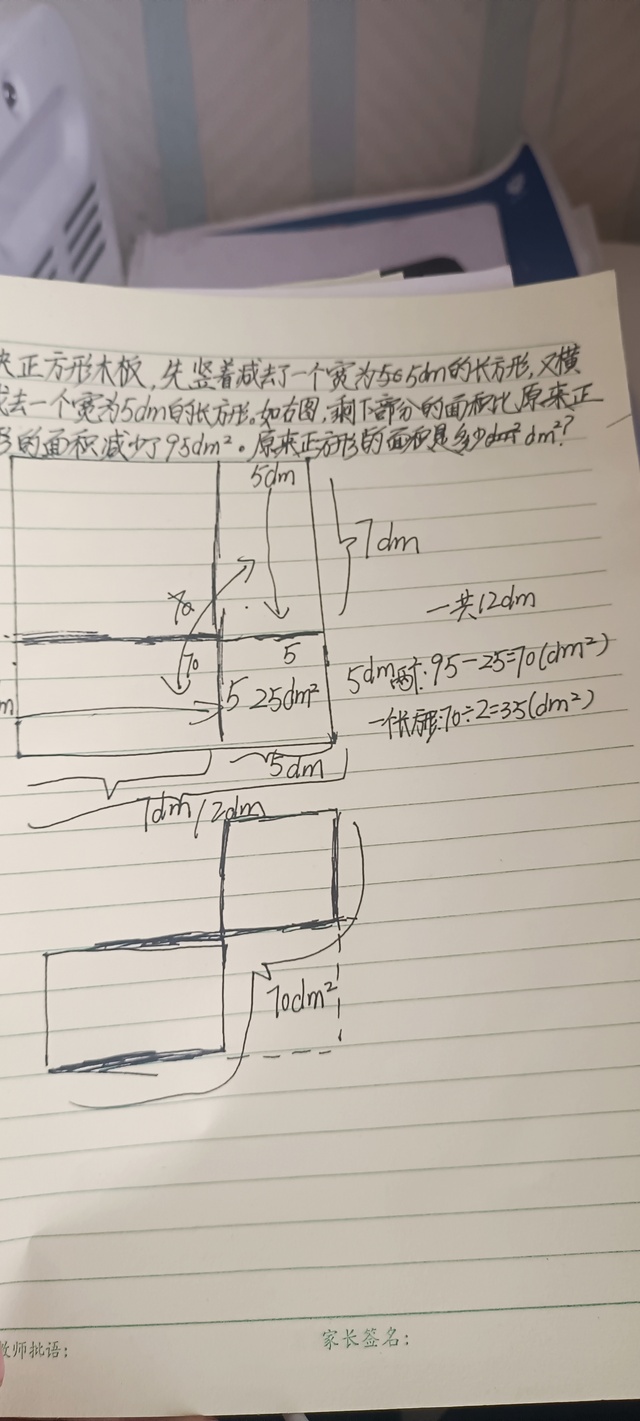 正方形木板,先竖着减去了一个宽为5dm的长方形,又横
去一个宽为5dm的长方形。如右图,剩下部分的面积比原来正
的面积减少了95dm²。原来正方形的面积是多少dm²?
5dm
7dm
一共12dm
70
5
5dm两个:95-25=70(dm²)
m
5
25dm²
一个长方形:70÷2=35(dm²)
5dm
7dm
12dm
70dm²
教师批语:
家长签名: